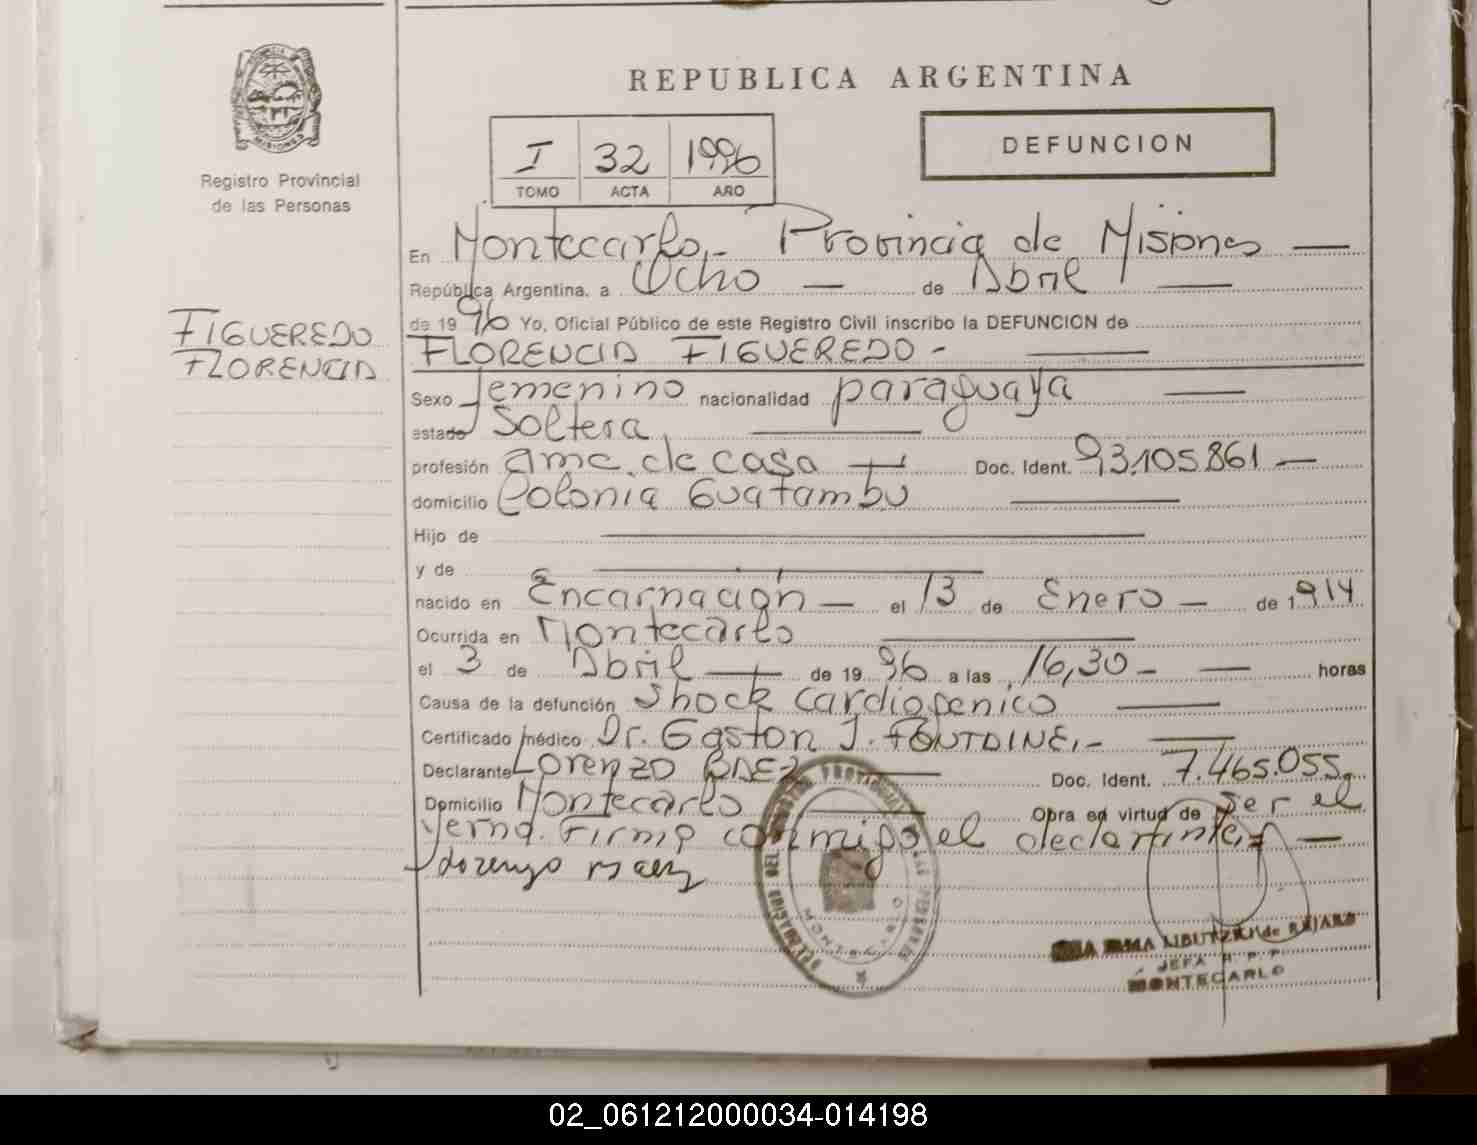 REPUBLICA ARGENTINA
DEFUNCION
I 32 1996
TOMO ACTA AÑO
Registro Provincial
de las Personas
FIGUEREDO
FLORENCIA
En Montecarlo.- Provincia de Misiones —
República Argentina, a Ocho — de Abril —
de 1996 Yo, Oficial Público de este Registro Civil inscribo la DEFUNCION de
FLORENCIA FIGUEREDO - —
Sexo femenino nacionalidad paraguaya —
estado Soltera, —
profesión ama de casa — Doc. Ident. 93.105.861 —
domicilio Colonia Guatambu —
Hijo de —
y de —
nacido en Encarnación — el 13 de Enero — de 1914
Ocurrida en Montecarlo —
el 3 de Abril — de 1996 a las 16,30 - — horas
Causa de la defunción Shock cardiogenico —
Certificado médico Dr. Gaston J. FONTAINE.- —
Declarante Lorenzo BAEZ — Doc. Ident. 7.465.055.
Domicilio Montecarlo — Obra en virtud de Ser el
yerno. Firma conmigo el declarante.- —
Lorenzo Baez
MONTECARLO
JEFA R. P. P.
MONTECARLO
02_061212000034-014198